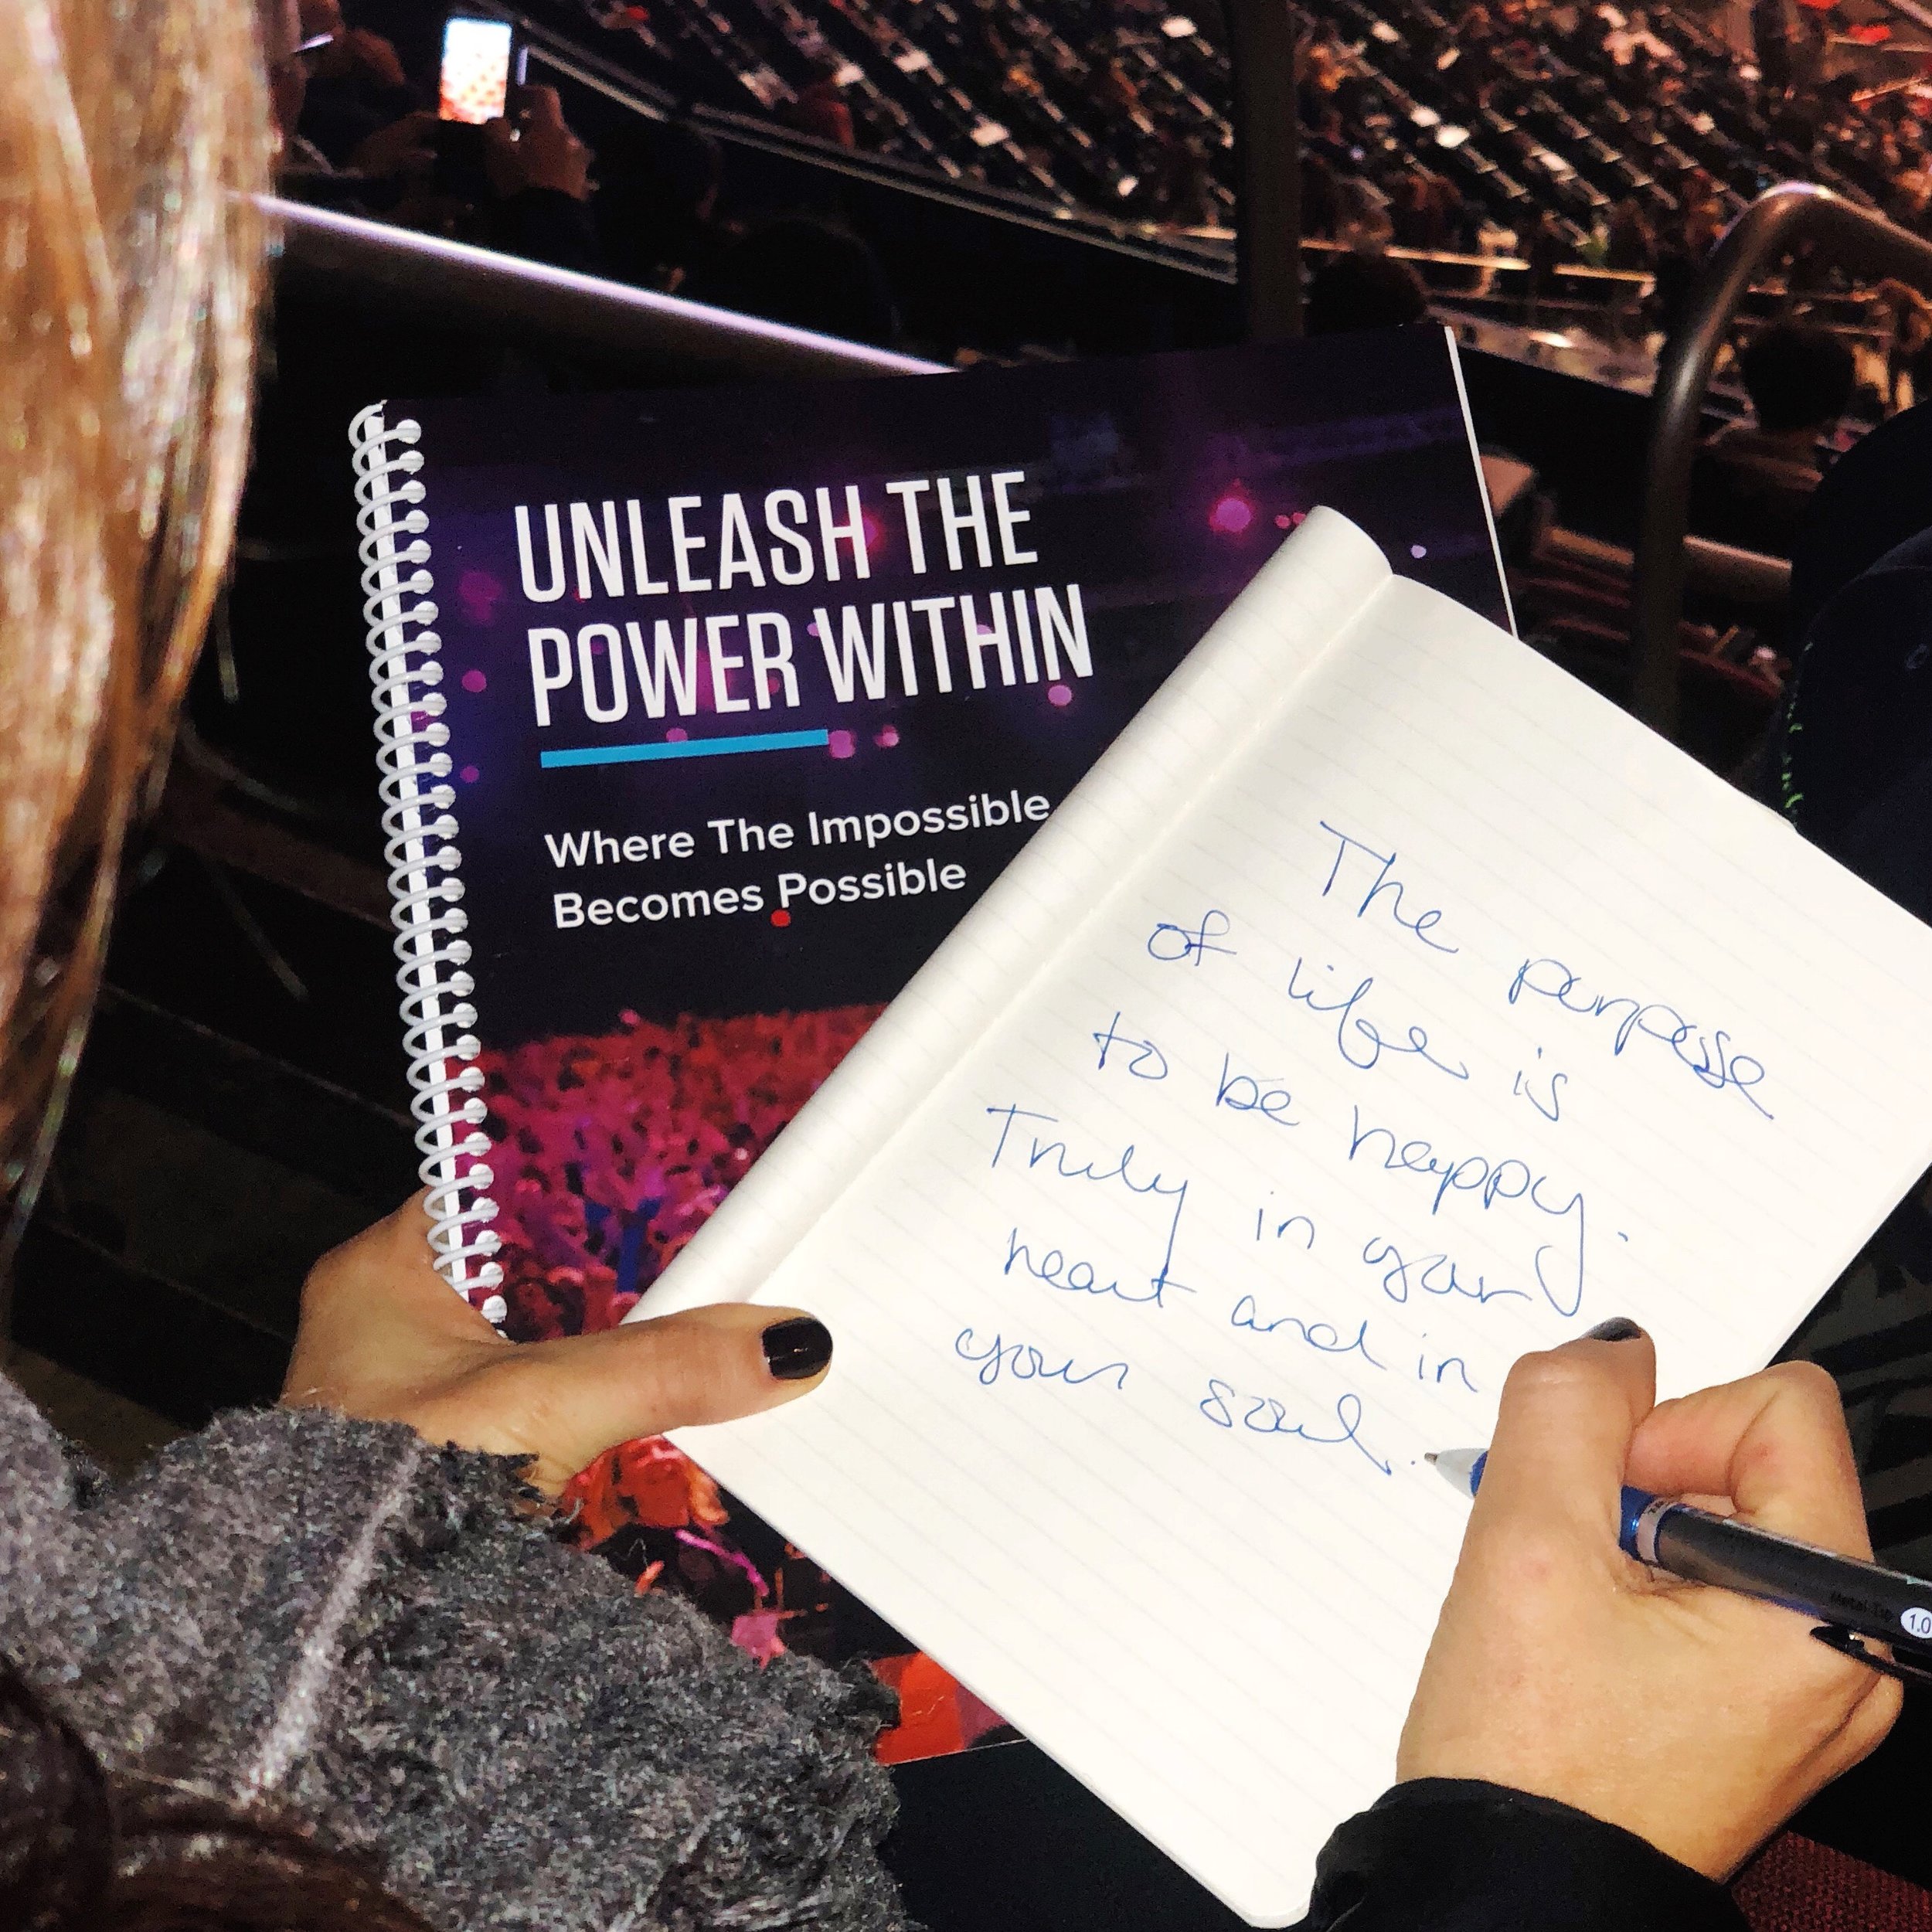 UNLEASH THE
POWER WITHIN
Where The Impossible
Becomes Possible
The purpose
of life is
to be happy.
Truly in your
heart and in
your soul.
Metal Tip
1.0